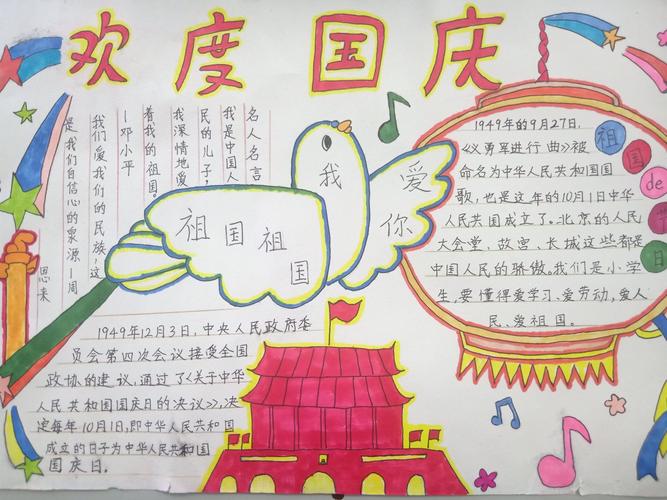 欢度国庆
名人名言
我是中国人
民的儿子,
我深情地爱
着我的祖国。
—邓小平
我们爱我们的民族,这
是我们自信心的泉源—周
恩来
我爱你
祖国祖国
1949年的9月27日,
《义勇军进行曲》被
命名为中华人民共和国国
歌,也是这年的10月1日中华
人民共国成立了。北京的人民
大会堂、故宫、长城这些都是
中国人民的骄傲。我们是小学
生,要懂得爱学习、爱劳动,爱人
民、爱祖国。
祖
国
de
日
1949年12月3日,中央人民政府委
员会第四次会议接受全国
政协的建议,通过了《关于中华
人民共和国国庆日的决议》,决
定每年10月1日,即中华人民共和国
成立的日子为中华人民共和国
国庆日。